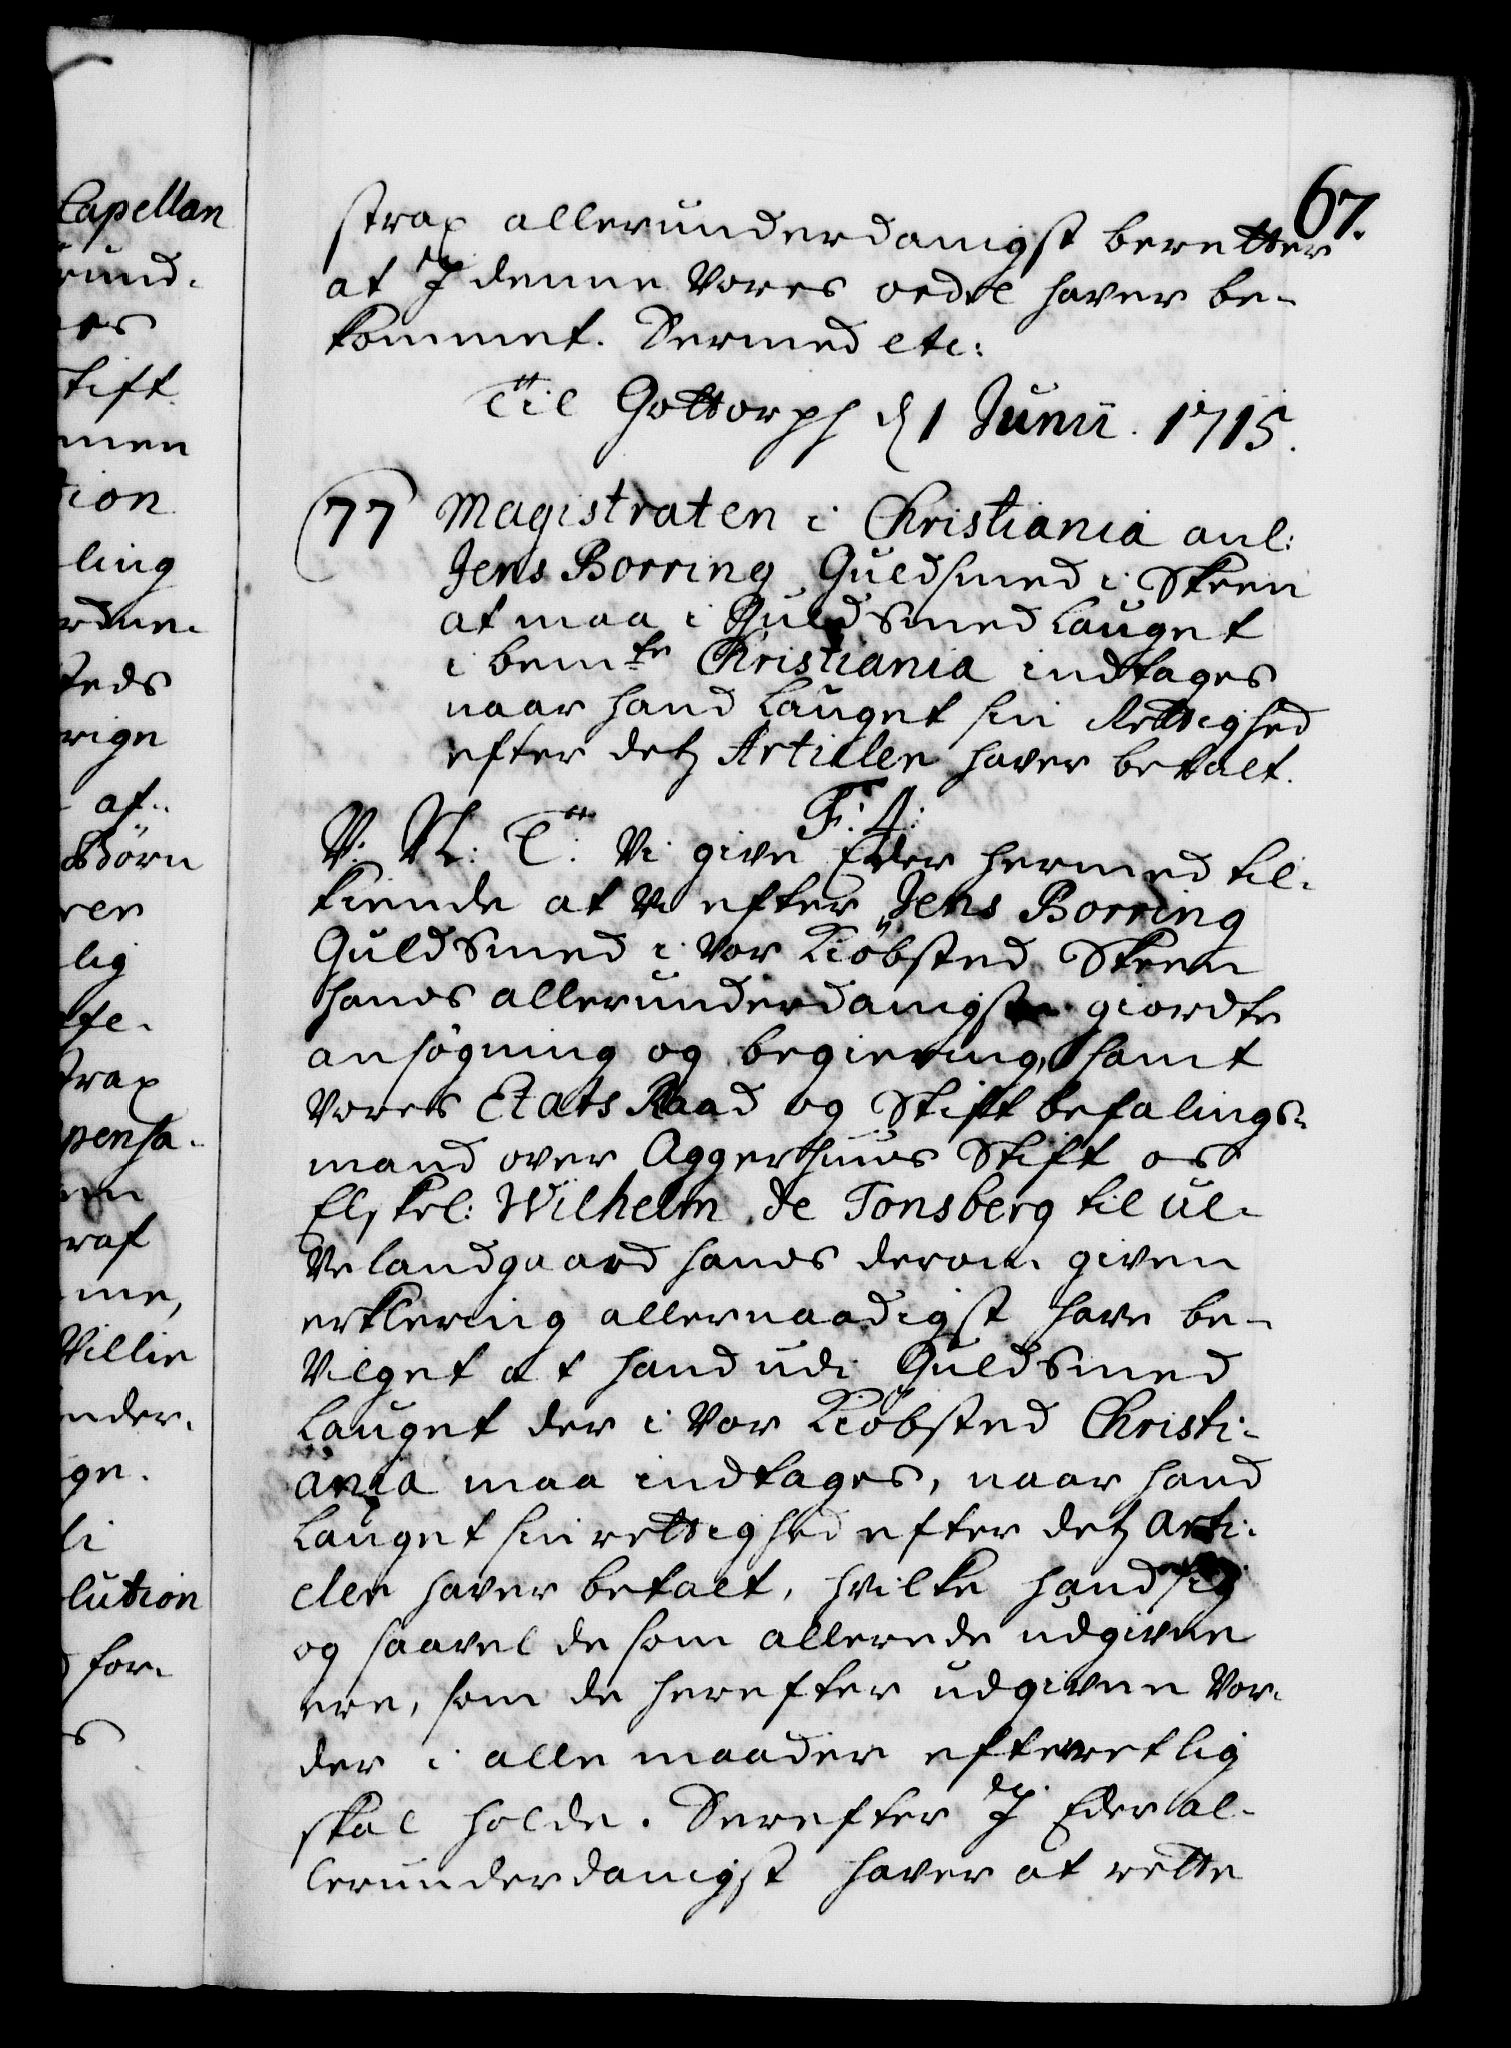 Capellan
rund-
es
tift
men
tion
ling
rdne-
teds
rign
af-
Børn
rer
lig
fte-
trax
pensa-
en
raf
me,
Villie
nder-
gn.
li
lution
for-
s
67.
strax allerunderdanigst beretter
at I denne Vores ordre haver be-
kommet. Dermed etc:
Til Gottorph d 1 Junii. 1715.
77 Magistraten i Christiania anl:
Jens Borring Guldsmed i Skeen
at maa i Guldsmed Lauget
i bemte Christiania indtages
naar hand Lauget sin Rettighed
efter detz Articler haver betalt.
F: 4:
V: G: T: Vi give Eder hermed til-
kiende at Vi efter Jens Borring
Guldsmed i Vor Kiøbsted Skeen
hans allerunderdanigste giordte
ansøgning og begiering, samt
Vores Etats Raad og Stiftbefalings-
mand over Aggerhuus Stift os
Elskel: Wilhelm de Tonsberg til Ul-
velandgaard hans derom given
erklering allernaadigst have be-
Vilget at hand udi Guldsmed
Lauget der i Vor Kiøbsted Christi-
ania maa indtages, naar hand
Lauget sin rettighed efter detz Arti-
cler haver betalt, hvilke hand sig
og saavel de som allerede udgivne
ere, som de herefter udgivne Vor-
der i alle maader efterretlig
skal holde. Derefter I Eder al-
lerunderdanigst haver at rette